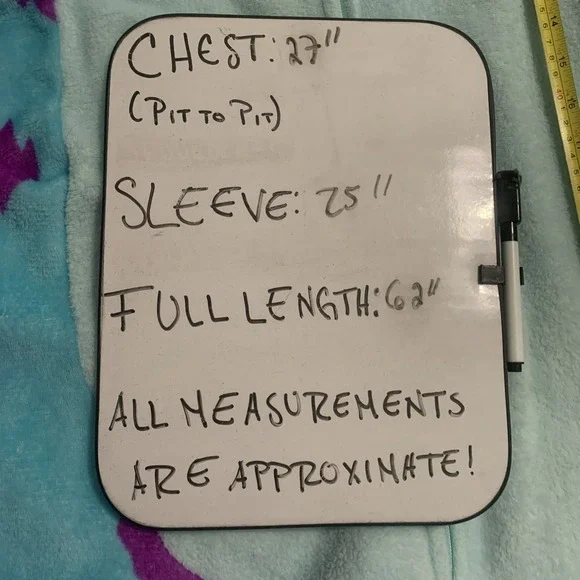 CHEST: 27"
(PIT TO PIT)
SLEEVE: 25"
FULL LENGTH: 62"
ALL MEASUREMENTS
ARE APPROXIMATE!